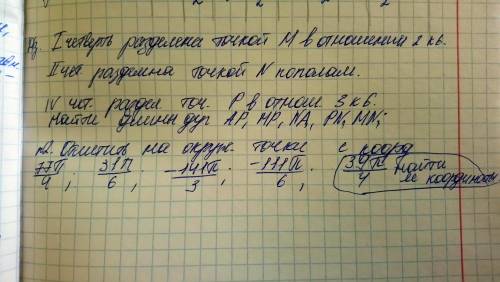 I четверть разделена точкой M в отношении 2 к 6.
II чет. разделена точкой N пополам.
IV чет. раздел. точ. P в отнош. 3 к 6.
Найти длинны дуг AP, MP, NA, PN, MN;
№2. Отметить на окруж. точки с коорд
77π/4 ; 31π/6 ; -141π/3 ; -111π/6 ; 39π/4 найти
их координаты